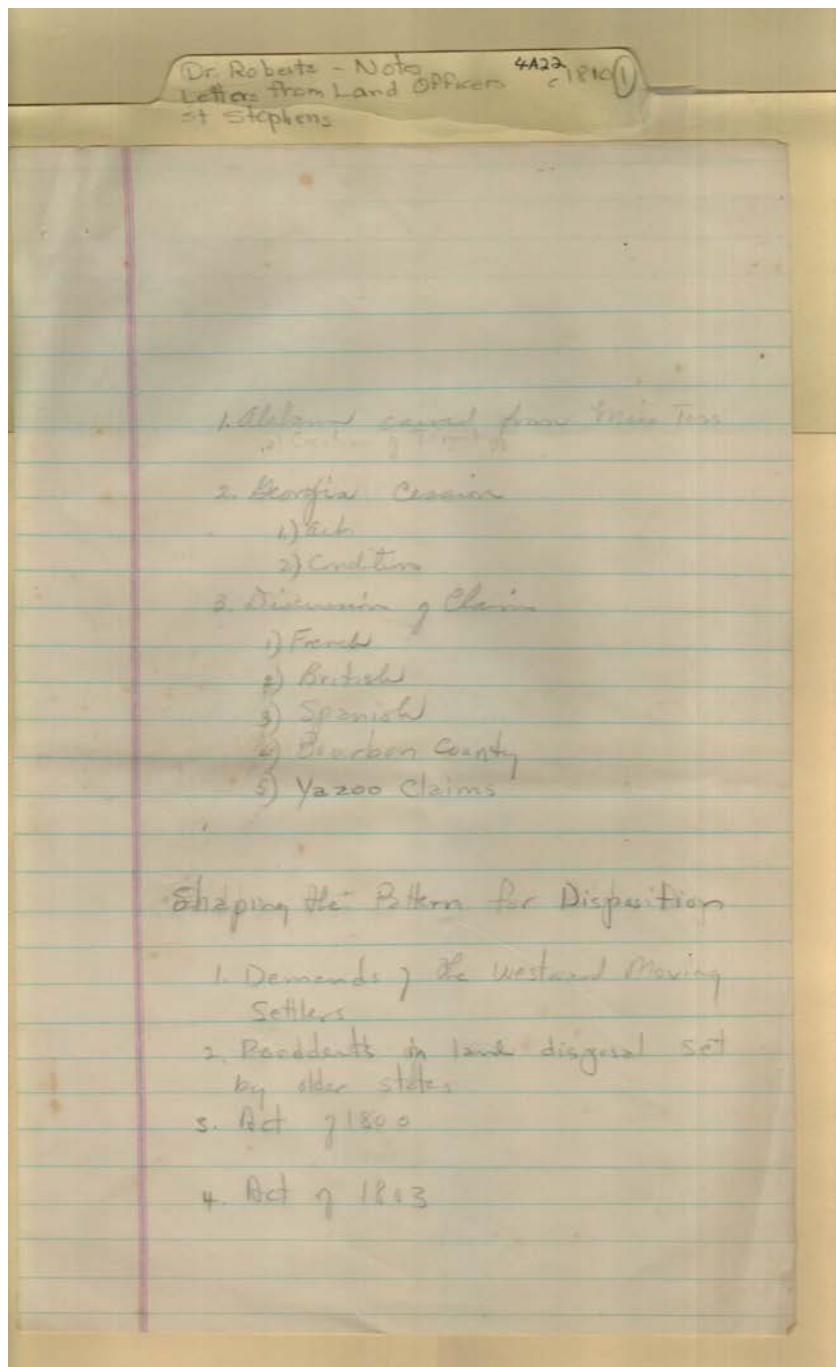 Dr. Roberts - Notes 4A22 c1810 1
Letters from Land Officers
St Stephens
1. Alabama carved from Miss Terr
2) Creation of Territory
2. Georgia Cession
1) Act
2) Conditions
3. Discussion of Claims
1) French
2) British
3) Spanish
4) Bourbon County
5) Yazoo Claims
Shaping the Pattern for Disposition
1. Demands of the Westward Moving
Settlers
2. in land disposal set
by older states
3. Act of 1800
4. Act of 1803